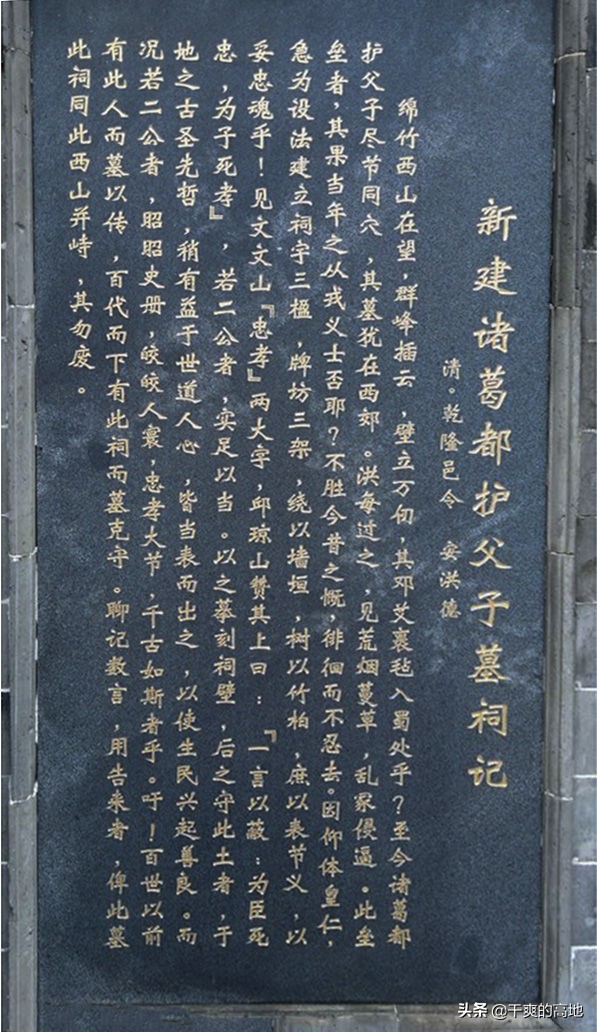 新建诸葛都护父子墓祠记
清。乾隆邑令 安洪德
绵竹西山在望，群峰插云，壁立万旬，其邓艾裹毡入蜀处乎？至今诸葛都
护父子尽节同穴，其墓犹在西郊。洪每过之，见荒烟蔓草，乱冢侵逼。此垒
垒者，其果当年之从戎义士否耶？不胜今昔之慨，徘徊而不忍去。因仰体皇仁，
急为设法建立祠宇三楹，牌坊三架，绕以墙垣，树以竹柏，庶以表节义，以
妥忠魂乎！见文文山『忠孝』两大字，邱琼山赞其上曰：『一言以蔽：为臣死
忠，为子死孝』，若二公者，实足以当。以之摹刻祠壁，后之守此土者，于
地之古圣先哲，稍有益于世道人心，皆当表而出之，以使生民兴起善良。而
况若二公者，昭昭史册，皎皎人寰，忠孝大节，千古如斯者乎。吁！百世以前
有此人而墓以传，百代而下有此祠而墓克守。聊记数言，用告来者，俾此墓
此祠同此西山并峙，其勿废。
头条 @干爽的高地